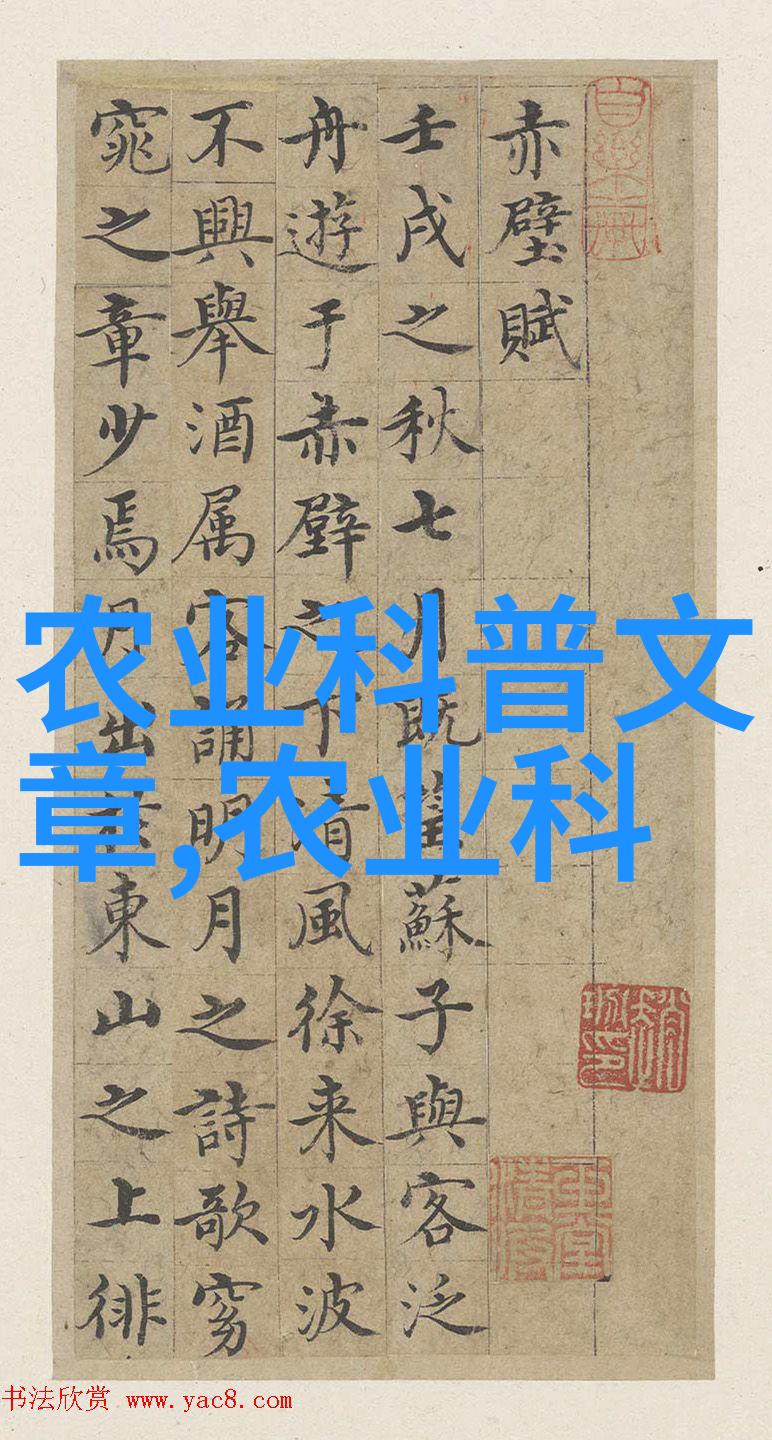 赤壁賦
壬戌之秋七月既望蘇子與客泛
舟遊于赤壁之下清風徐来水波
不興舉酒属客誦明月之詩歌窈
窕之章少焉月出於東山之上徘
农业科普文
章,农业科
书法欣赏 www.yac8.com